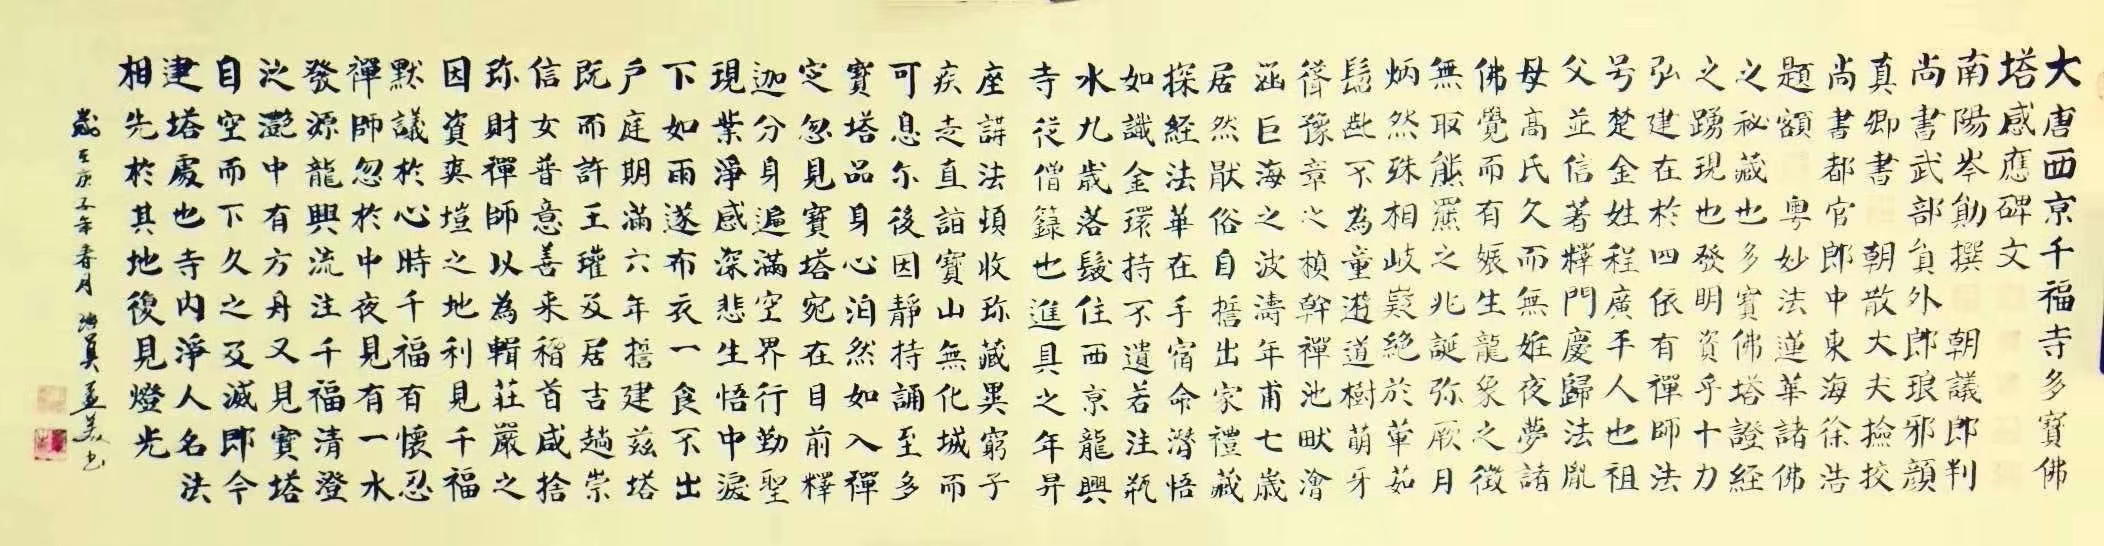 大唐西京千福寺多寶佛
塔感應碑文
南陽岑勛撰 朝議郎判
尚書武部員外郎琅邪顏
真卿書 朝散大夫撿挍
尚書都官郎中東海徐浩
題額 粵妙法蓮華諸佛
之秘藏也多寶佛塔證經
之踴現也發明資乎十力
弘建在於四依有禪師法
号楚金姓程廣平人也祖
父並信著釋門慶歸法胤
母高氏久而無姙夜夢諸
佛覺而有娠生龍象之徵
無取熊羆之兆誕弥厥月
炳然殊相岐嶷絕於葷茹
髫齔不為童遊道樹萌牙
聳豫章之楨幹禪池畎澮
涵巨海之波濤年甫七歲
居然猒俗自誓出家禮藏
探経法華在手宿命潛悟
如識金環持不遺若注瓶
水九歲落髮住西京龍興
寺從僧籙也進具之年昇
座講法頓收珎藏異窮子
疾走直詣寶山無化城而
可息尔後因靜持誦至多
寶塔品身心泊然如入禪
定忽見寶塔宛在目前釋
迦分身遍滿空界行勤聖
現業淨感深悲生悟中淚
下如雨遂布衣一食不出
戶庭期滿六年誓建茲塔
既而許王瓘及居吉趙崇
信女普意善来稽首咸捨
珎財禪師以為輯莊嚴之
因資爽塏之地利見千福
默議於心時千福有懷忍
禪師忽於中夜見有一水
發源龍興流注千福清澄
泛灔中有方舟又見寶塔
自空而下久之乃滅即今
建塔處也寺内淨人名法
相先於其地復見燈光
歲在庚子年春月